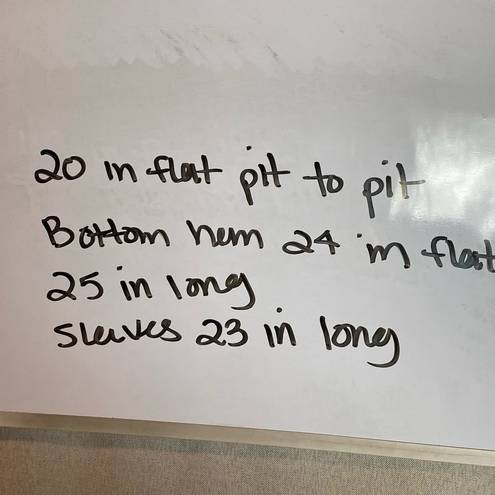 20 in flat pit to pit
Bottom hem 24 in flat
25 in long
Sleeves 23 in long